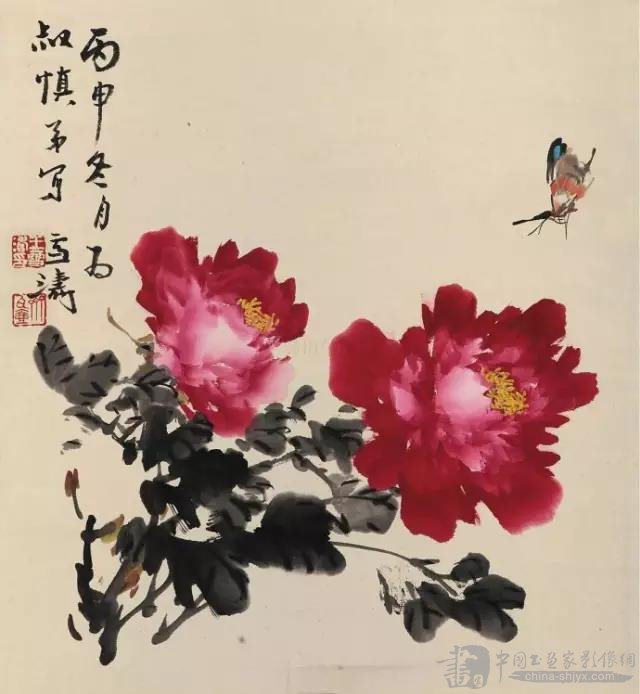 丙申冬月为
叔慎弟写 雪涛
書 中国书画家影像網
china-shjyx.com